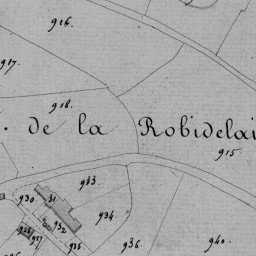 916.
917.
918.
de la Robidelai
915
933
930
31
934
932
928
927
935
936
940.